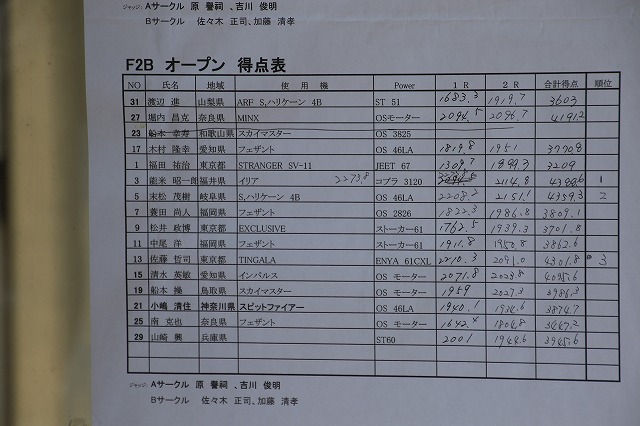 ジャッジ: Aサークル 原 譽祠 、吉川 俊明
Bサークル 佐々木 正司、加藤 清孝
F2B オープン 得点表
NO 氏名 地域 使用機 Power 1R 2R 合計得点 順位
31 渡辺 進 山梨県 ARF S,ハリケーン 4B ST 51 1683.3 1919.7 3603
27 堀内 昌克 奈良県 MINX OSモーター 2094.5 2096.7 4191.2
23 船本 幸寿 和歌山県 スカイマスター OS 3825
17 木村 隆幸 愛知県 フェザント OS 46LA 1819.8 1951 3770.8
1 福田 祐治 東京都 STRANGER SV-11 JEET 67 1309.7 1899.3 3209
3 能米 昭一郎 福井県 イリア 2273.8 コブラ 3120 2114.8 4388.6 1
5 末松 茂樹 岐阜県 S,ハリケーン 4B OS 46LA 2208.2 2151.1 4359.3 2
7 蓑田 尚人 福岡県 フェザント OS 2826 1822.3 1986.8 3809.1
9 松井 政博 東京都 EXCLUSIVE ストーカー61 1762.5 1939.3 3701.8
11 中尾 洋 福岡県 フェザント ストーカー61 1911.8 1950.8 3862.6
13 佐藤 哲司 東京都 TINGALA ENYA 61CXL 2210.3 2091.0 4301.8 3
15 清水 英敏 愛知県 インパルス OS モーター 2071.8 2023.8 4095.6
19 船本 操 鳥取県 スカイマスター OS モーター 1959 2027.3 3986.3
21 小嶋 清住 神奈川県 スピットファイアー OS 46LA 1940.1 1934.6 3874.7
25 南 克也 奈良県 フェザント OS モーター 1642.4 1804.8 3447.2
29 山崎 興 兵庫県 ST60 2001 1944.6 3945.6
ジャッジ: Aサークル 原 譽祠 、吉川 俊明
Bサークル 佐々木 正司、加藤 清孝